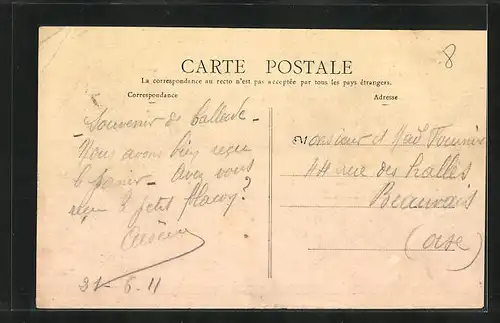 8
CARTE POSTALE
La correspondance au recto n'est pas acceptée par tous les pays étrangers.
Correspondance
Adresse
Souvenir de ballade -
Nous avons bien reçu
le panier - Avez vous
reçu le petit flacon ?
31-6-11
Monsieur et Mad Fournier
44 rue des halles
Beauvais
(oise)